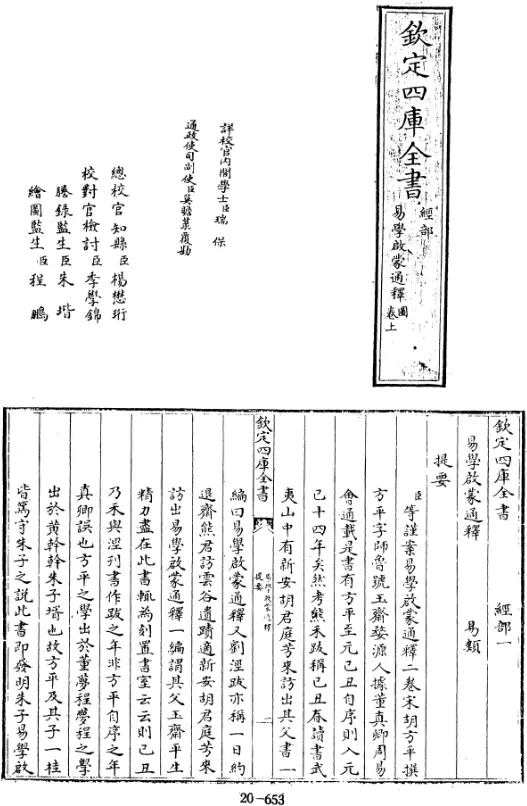 欽定四庫全書
經部
易學啟蒙通釋
圖
卷上
詳校官内閣學士臣瑞保
通政使司副使臣莫瞻菉覆勘
總校官知縣臣楊懋珩
校對官檢討臣李學錦
謄錄監生臣朱堦
繪圖監生臣程鵬
欽定四庫全書 經部一
易學啟蒙通釋 易類
提要
臣等謹案易學啟蒙通釋二卷宋胡方平撰
方平字師魯號玉齋婺源人據董真卿周易
會通載是書有方平至元己丑自序則入元
已十四年矣然考熊禾跋稱己丑春讀書武
夷山中有新安胡君庭芳來訪出其父書一
欽定四庫全書
易學啟蒙通釋
提要
一
編曰易學啟蒙通釋又劉涇跋亦稱一日約
退齋熊君訪雲谷遺蹟適新安胡君庭芳來
訪出易學啟蒙通釋一編謂其父玉齋平生
精力盡在此書輒為刻置書室云云則已丑
乃禾與涇刊書作跋之年非方平自序之年
真卿誤也方平之學出於董夢程夢程之學
出於黄榦榦朱子壻也故方平及其子一桂
皆篤守朱子之說此書即發明朱子易學啟
20-653